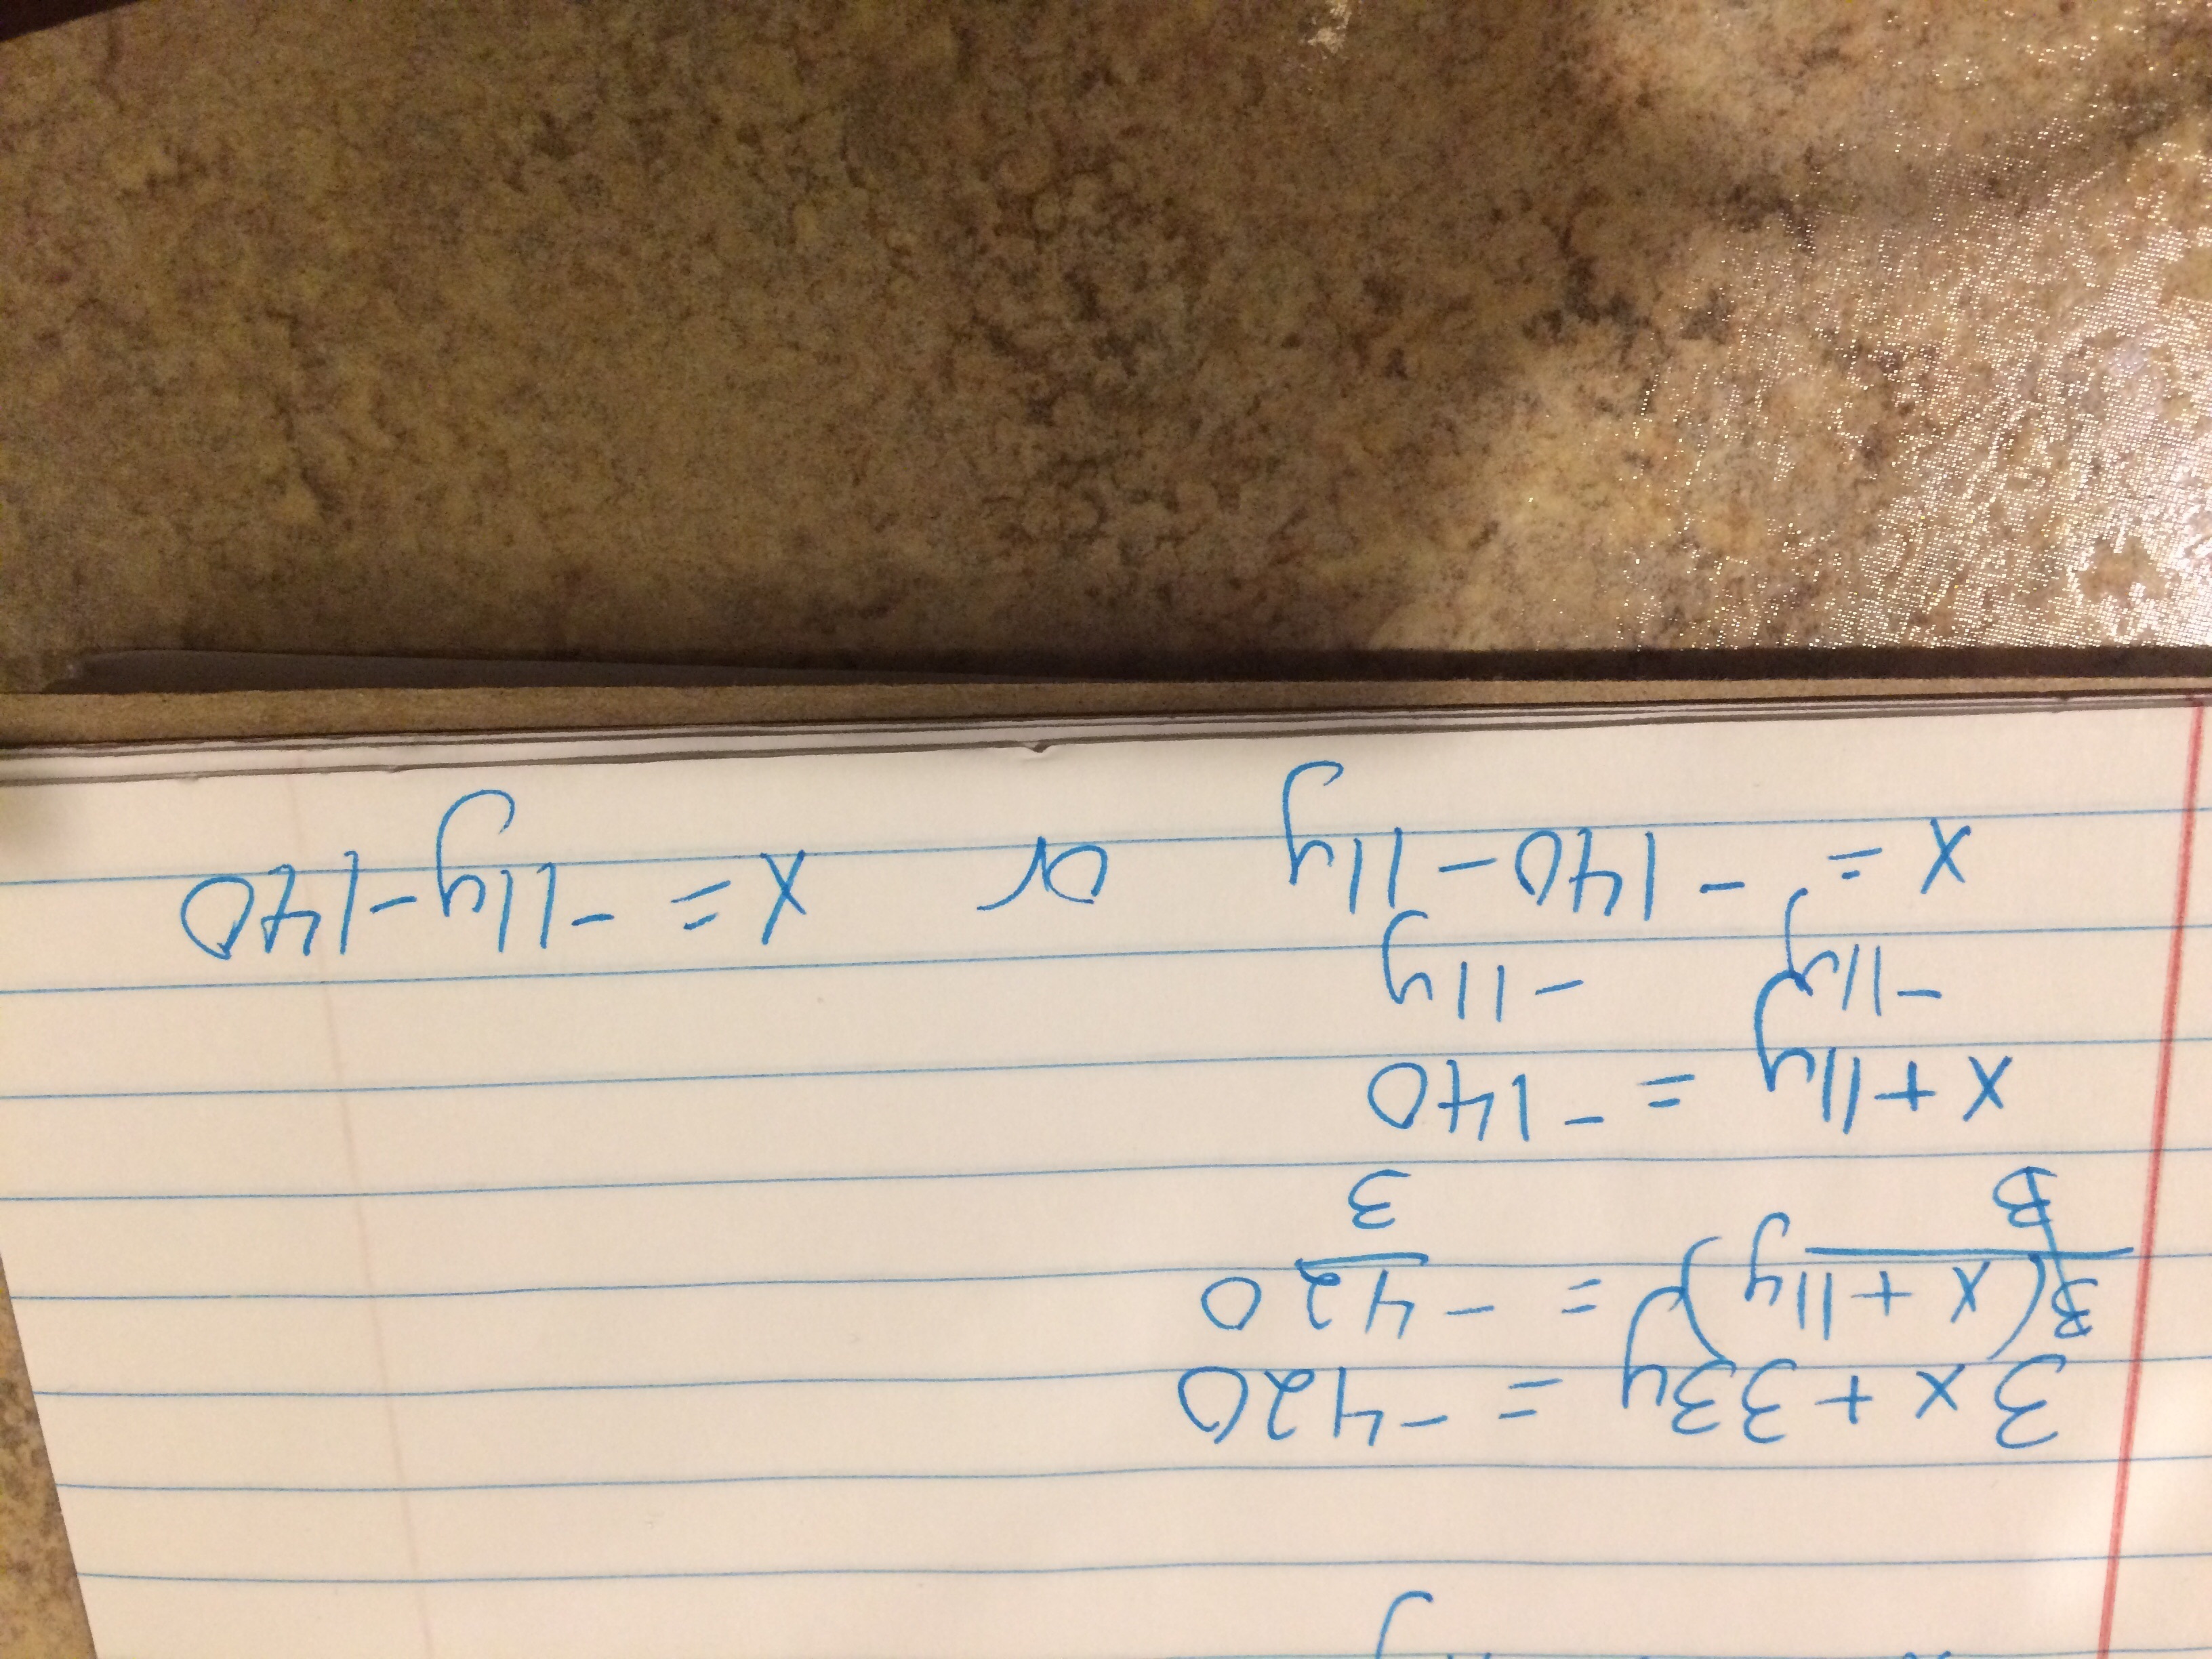 3x + 33y = -420
3(x + 11y) = -420
3 3
x + 11y = -140
-11y -11y
x = -140 - 11y or x = -11y - 140